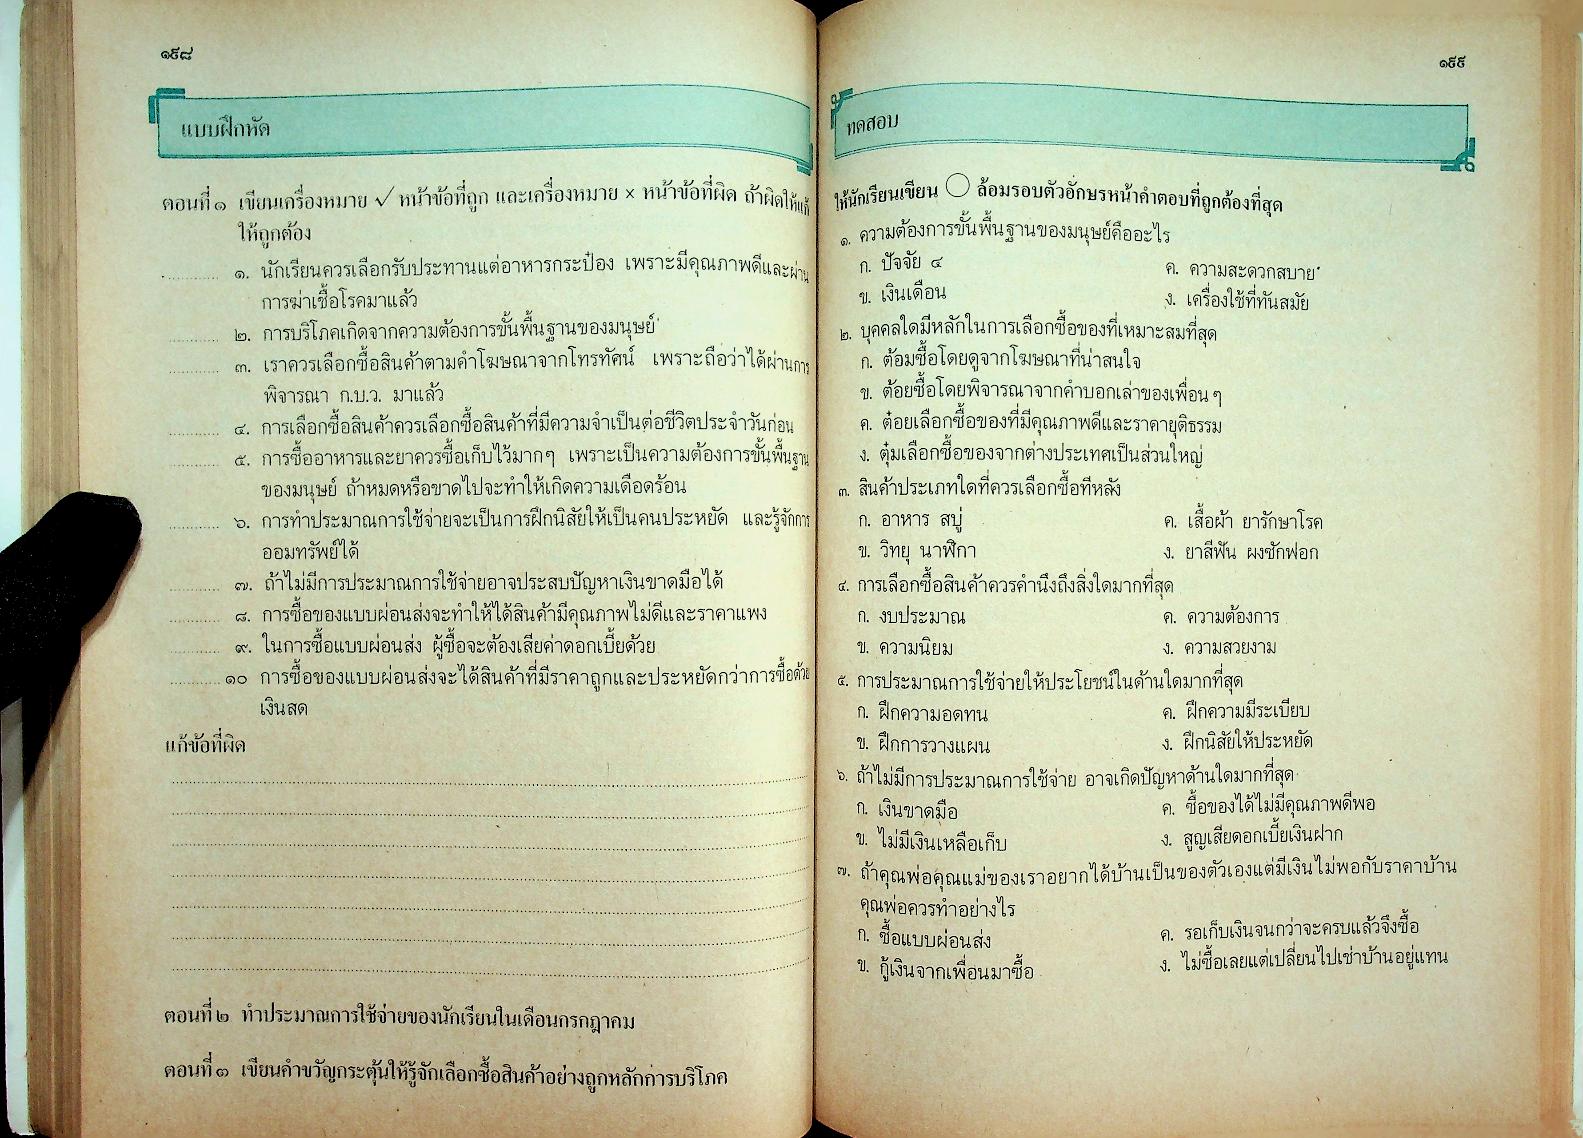 ๑๙๘
แบบฝึกหัด
ตอนที่ ๑ เขียนเครื่องหมาย ✓ หน้าข้อที่ถูก และเครื่องหมาย × หน้าข้อที่ผิด ถ้าผิดให้แก้
ให้ถูกต้อง
............ ๑. นักเรียนควรเลือกรับประทานแต่อาหารกระป๋อง เพราะมีคุณภาพดีและผ่าน
การฆ่าเชื้อโรคมาแล้ว
............ ๒. การบริโภคเกิดจากความต้องการขั้นพื้นฐานของมนุษย์
............ ๓. เราควรเลือกซื้อสินค้าตามคำโฆษณาจากโทรทัศน์ เพราะถือว่าได้ผ่านการ
พิจารณา ก.บ.ว. มาแล้ว
............ ๔. การเลือกซื้อสินค้าควรเลือกซื้อสินค้าที่มีความจำเป็นต่อชีวิตประจำวันก่อน
............ ๕. การซื้ออาหารและยาควรซื้อเก็บไว้มากๆ เพราะเป็นความต้องการขั้นพื้นฐาน
ของมนุษย์ ถ้าหมดหรือขาดไปจะทำให้เกิดความเดือดร้อน
............ ๖. การทำประมาณการใช้จ่ายจะเป็นการฝึกนิสัยให้เป็นคนประหยัด และรู้จักการ
ออมทรัพย์ได้
............ ๗. ถ้าไม่มีการประมาณการใช้จ่ายอาจประสบปัญหาเงินขาดมือได้
............ ๘. การซื้อของแบบผ่อนส่งจะทำให้ได้สินค้ามีคุณภาพไม่ดีและราคาแพง
............ ๙. ในการซื้อแบบผ่อนส่ง ผู้ซื้อจะต้องเสียค่าดอกเบี้ยด้วย
............ ๑๐ การซื้อของแบบผ่อนส่งจะได้สินค้าที่มีราคาถูกและประหยัดกว่าการซื้อด้วย
เงินสด
แก้ข้อที่ผิด
ตอนที่ ๒ ทำประมาณการใช้จ่ายของนักเรียนในเดือนกรกฎาคม
ตอนที่ ๓ เขียนคำขวัญกระตุ้นให้รู้จักเลือกซื้อสินค้าอย่างถูกหลักการบริโภค
๑๙๙
ทดสอบ
ให้นักเรียนเขียน ◯ ล้อมรอบตัวอักษรหน้าคำตอบที่ถูกต้องที่สุด
๑. ความต้องการขั้นพื้นฐานของมนุษย์คืออะไร
ก. ปัจจัย ๔ ค. ความสะดวกสบาย
ข. เงินเดือน ง. เครื่องใช้ที่ทันสมัย
๒. บุคคลใดมีหลักในการเลือกซื้อของที่เหมาะสมที่สุด
ก. ต้อมซื้อโดยดูจากโฆษณาที่น่าสนใจ
ข. ต้อยซื้อโดยพิจารณาจากคำบอกเล่าของเพื่อนๆ
ค. ต๋อยเลือกซื้อของที่มีคุณภาพดีและราคายุติธรรม
ง. ตุ๋มเลือกซื้อของจากต่างประเทศเป็นส่วนใหญ่
๓. สินค้าประเภทใดที่ควรเลือกซื้อทีหลัง
ก. อาหาร สบู่ ค. เสื้อผ้า ยารักษาโรค
ข. วิทยุ นาฬิกา ง. ยาสีฟัน ผงซักฟอก
๔. การเลือกซื้อสินค้าควรคำนึงถึงสิ่งใดมากที่สุด
ก. งบประมาณ ค. ความต้องการ
ข. ความนิยม ง. ความสวยงาม
๕. การประมาณการใช้จ่ายให้ประโยชน์ในด้านใดมากที่สุด
ก. ฝึกความอดทน ค. ฝึกความมีระเบียบ
ข. ฝึกการวางแผน ง. ฝึกนิสัยให้ประหยัด
๖. ถ้าไม่มีการประมาณการใช้จ่าย อาจเกิดปัญหาด้านใดมากที่สุด
ก. เงินขาดมือ ค. ซื้อของได้ไม่มีคุณภาพดีพอ
ข. ไม่มีเงินเหลือเก็บ ง. สูญเสียดอกเบี้ยเงินฝาก
๗. ถ้าคุณพ่อคุณแม่ของเราอยากได้บ้านเป็นของตัวเองแต่มีเงินไม่พอกับราคาบ้าน
คุณพ่อควรทำอย่างไร
ก. ซื้อแบบผ่อนส่ง ค. รอเก็บเงินจนกว่าจะครบแล้วจึงซื้อ
ข. กู้เงินจากเพื่อนมาซื้อ ง. ไม่ซื้อเลยแต่เปลี่ยนไปเช่าบ้านอยู่แทน